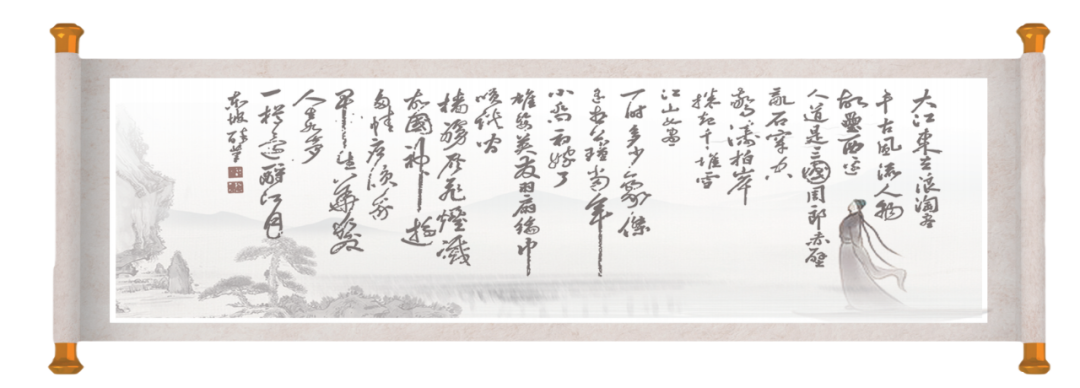 大江東去浪淘盡
千古風流人物
故壘西邊
人道是三國周郎赤壁
亂石穿空
驚濤拍岸
捲起千堆雪
江山如畫
一時多少豪傑
遙想公瑾當年
小喬初嫁了
雄姿英發羽扇綸巾
咲談間
檣艣灰飛煙滅
故國神遊
多情應咲我
早生華髮
人如夢
一樽還酹江月
東坡醉筆